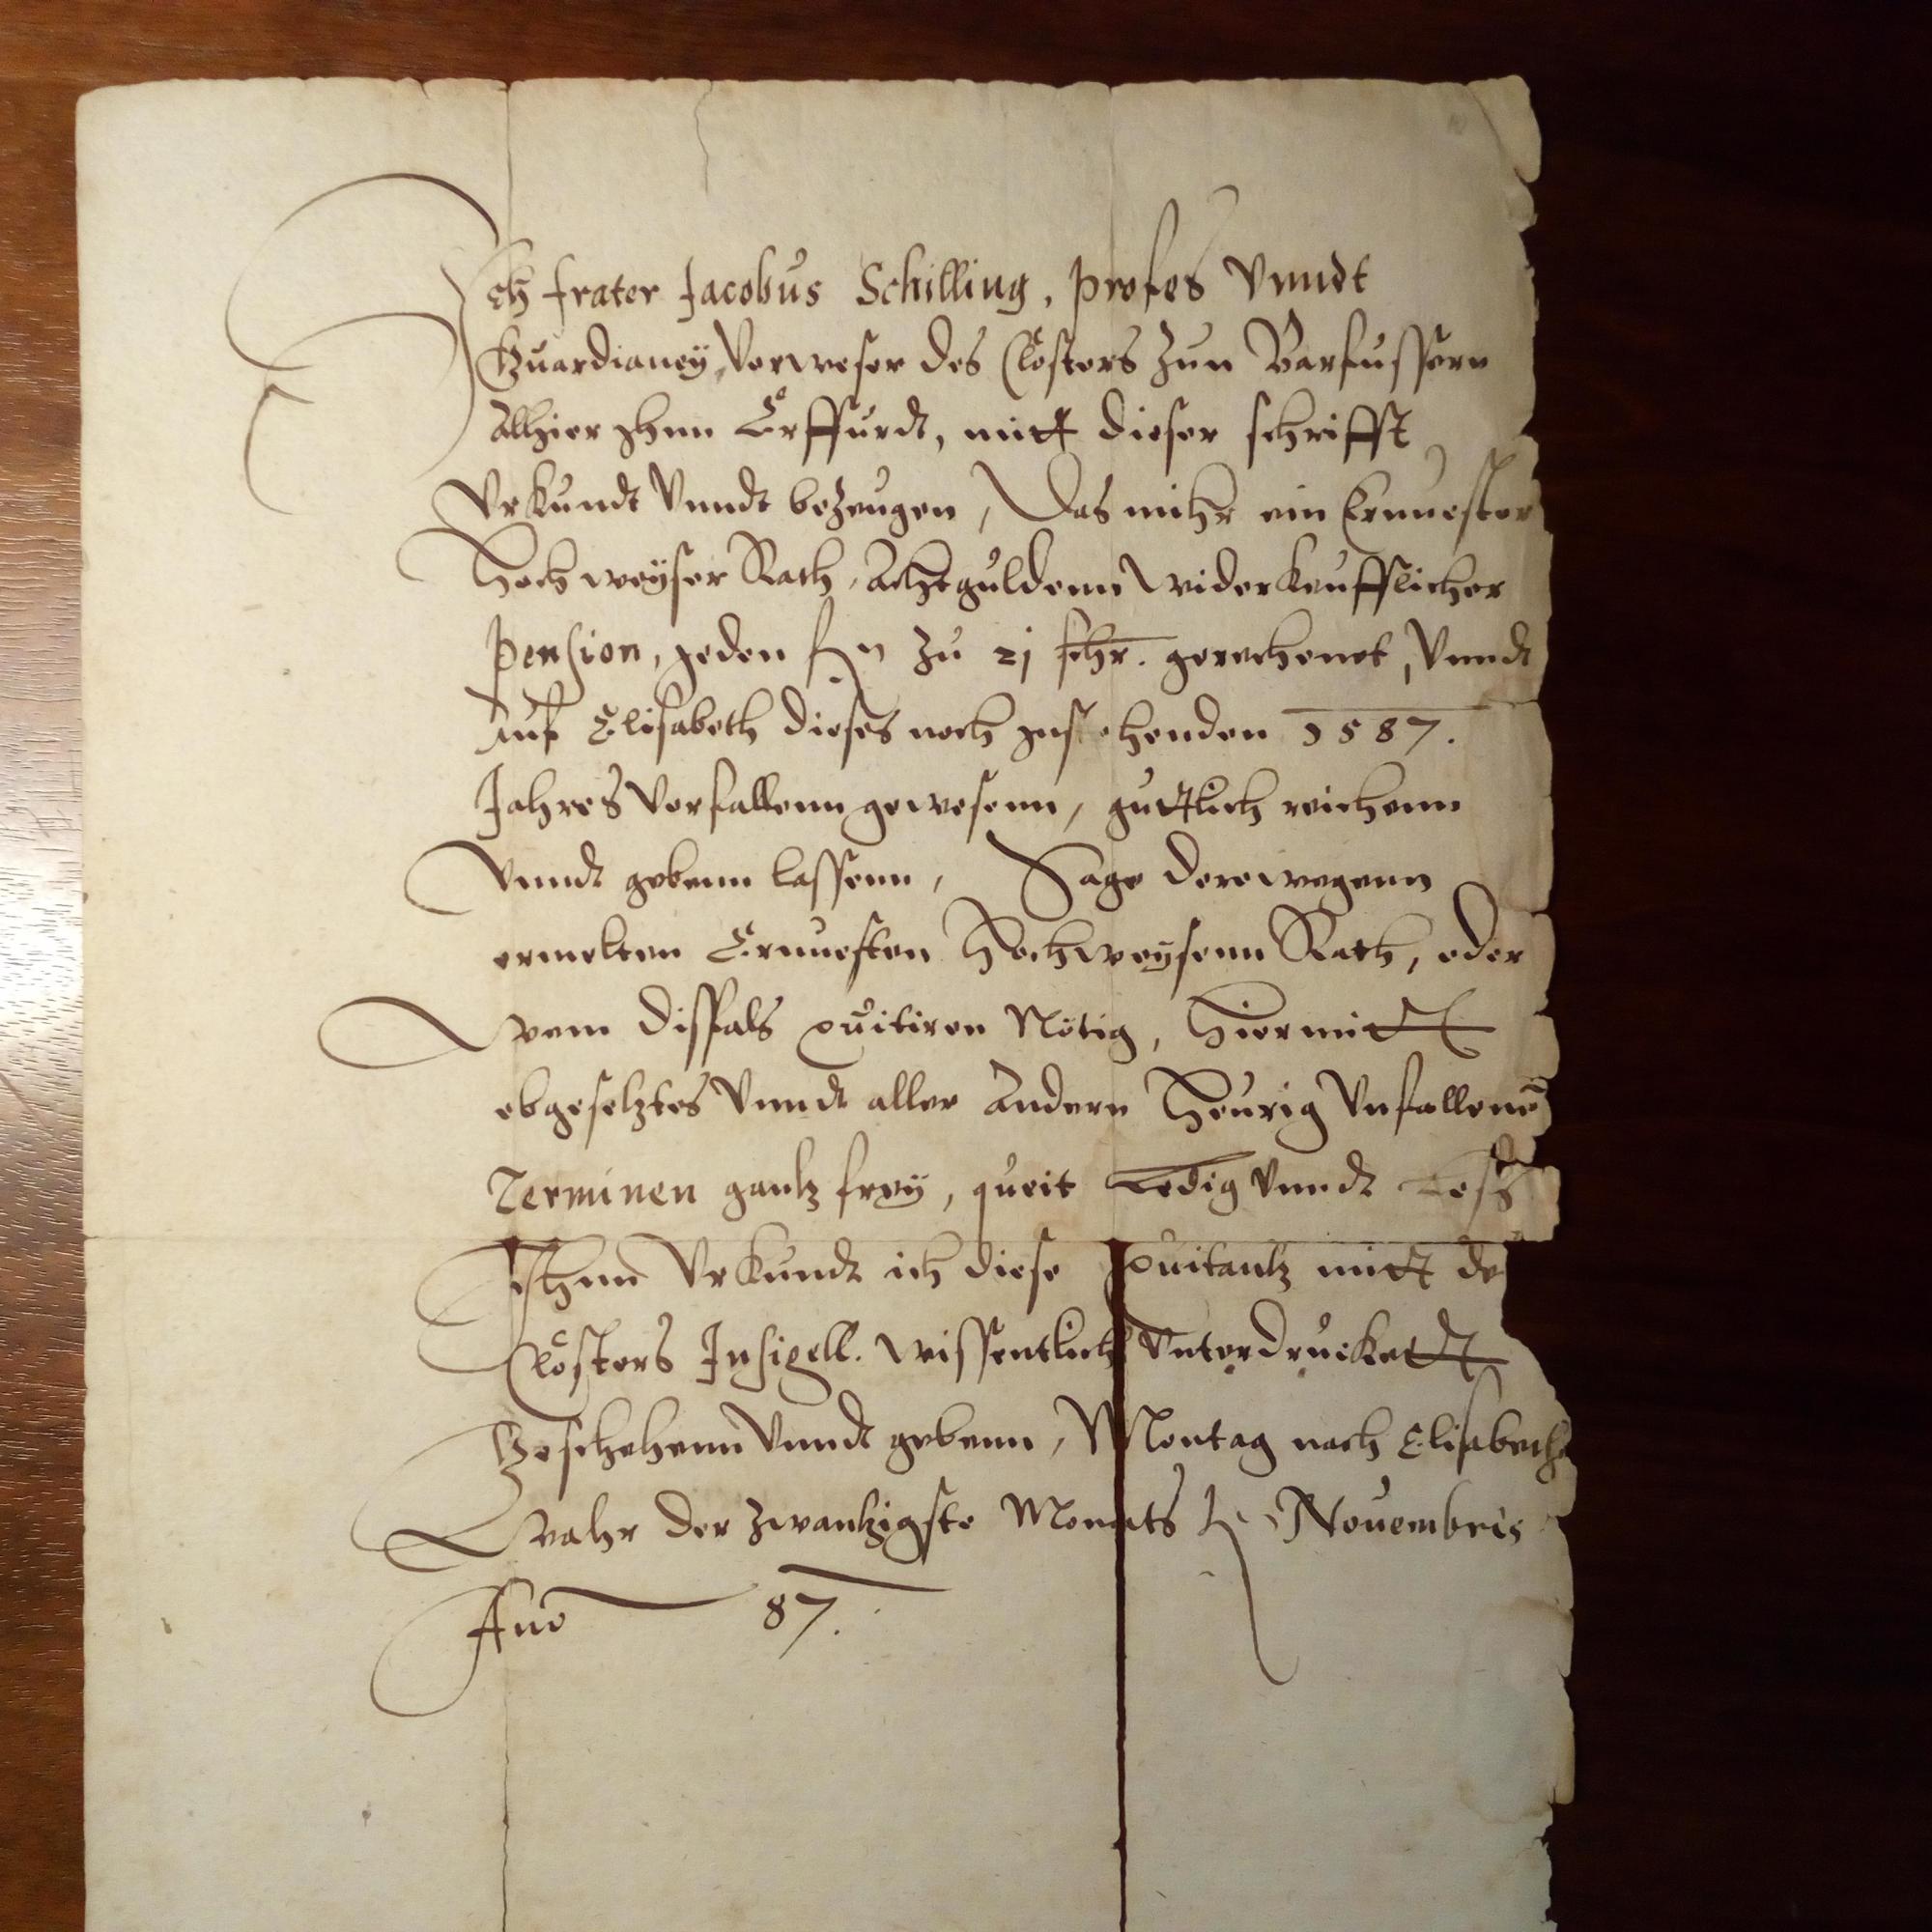 Ich frater Jacobus Schilling, profes Vnndt
Guardianey Verweser des Clösters zun Barfussern
Allhier zhnn Erffurdt, mitt dieser schrifft
Vrkundt Vnndt bezeugen, Das mihr ein Ernuester
Hoch weyser Rath, Acht guldenn widerkeufflicher
Pension, jeden fl zu 21 schr. gerechenet, Vnndt
Auf Elisabeth dieses noch zustehenden 1587.
Jahres Verfallenn gewesenn, guttlich reichenn
Vnndt gebenn lassenn, Sage derewegenn
ermelten Ernuesten Hochweysenn Rath, oder
wem dissfals quitiren Nötig, Hiermitt
obgesetztes Vnndt aller Andern Heurig Vnfallene
Terminen gantz frey, queit Ledig Vnndt Loss
Zhnn Vrkundt ich diese Quitantz mitt de
Clösters Insigell. wissentlich Vnterdruckett
Geschehenn Vnndt gebenn, Montag nach Elisabeth
wahr der zwantzigste Monats Nouembris
Ano 87.